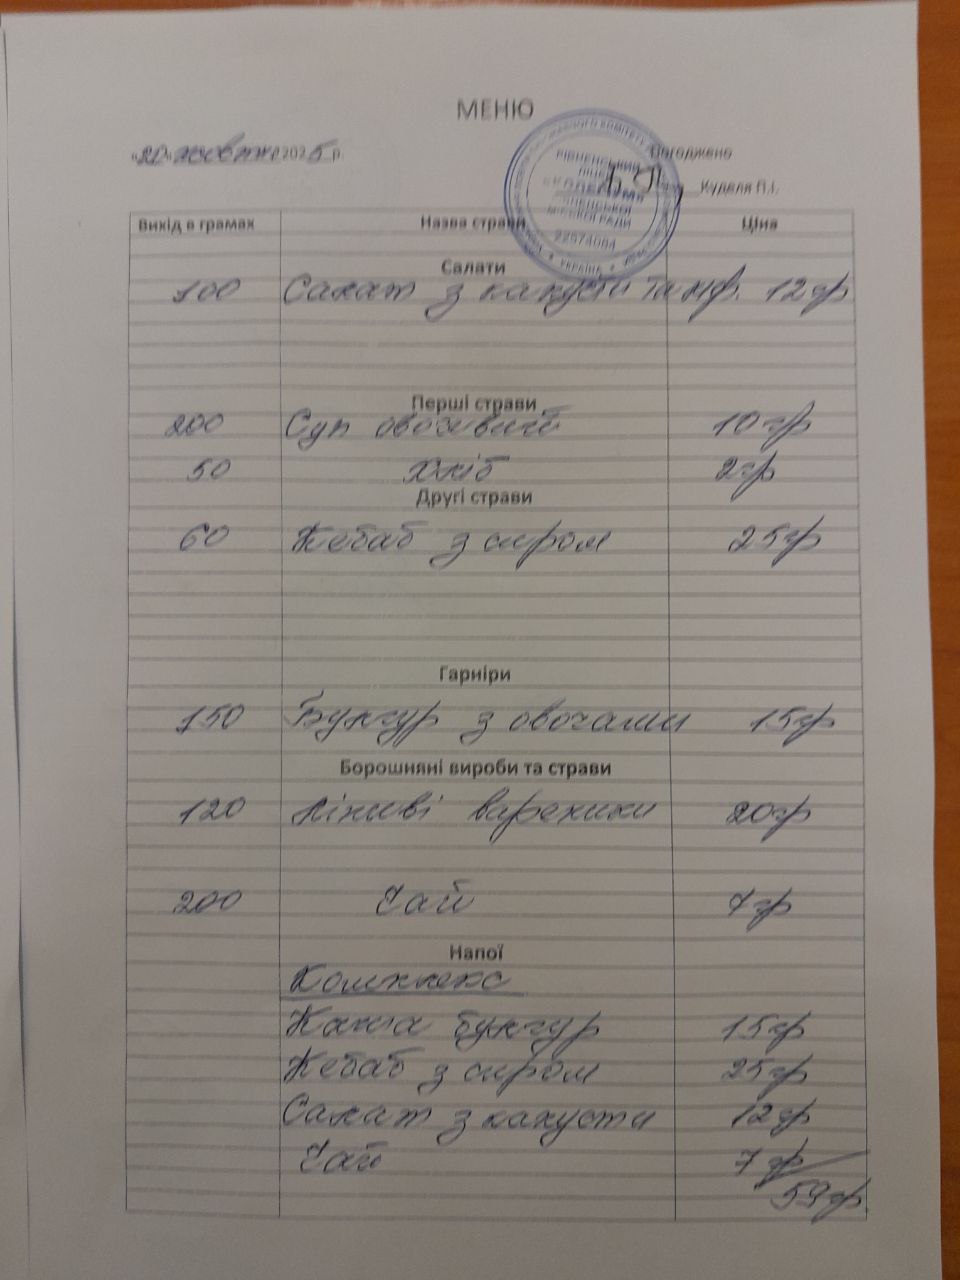 МЕНЮ
«20» жовтня 2025 р.
Погоджено
Куделя П.І.
РІВНЕНСЬКИЙ
ЛІЦЕЙ
«КОЛЕГІУМ»
РІВНЕНСЬКОЇ
МІСЬКОЇ РАДИ
22574084
УКРАЇНА
Вихід в грамах Назва страви Ціна
Салати
100 Салат з капусти та 12гр
Перші страви
200 Суп овочевий 10гр
50 Хліб 2гр
Другі страви
60 Кебаб з сиром 25гр
Гарніри
150 Булгур з овочами 15гр
Борошняні вироби та страви
120 Ліниві вареники 20гр
200 Чай 7гр
Напої
Комплекс
Каша булгур 15гр
Кебаб з сиром 25гр
Салат з капусти 12гр
Чай 7гр
59гр